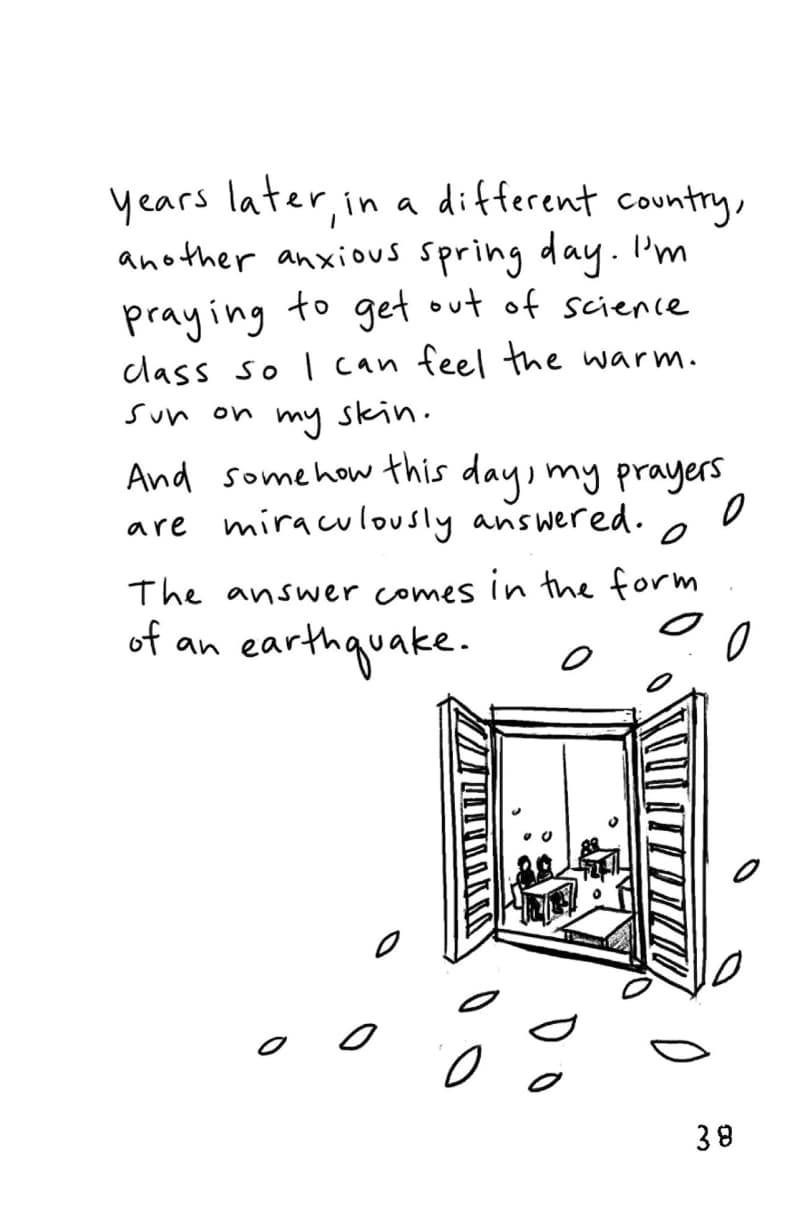 Years later, in a different country,
another anxious spring day. I'm
praying to get out of science
class so I can feel the warm.
sun on my skin.
And somehow this day, my prayers
are miraculously answered.
The answer comes in the form
of an earthquake.
38